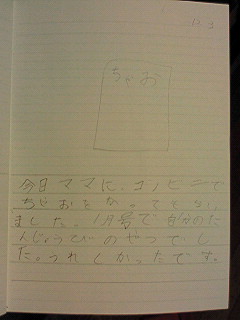 ちゃお
今日ママに、コンビニで
ちゃおをかってもらい
ました。1月号で自分のた
んじょうびのやつでし
た。うれしかったです。